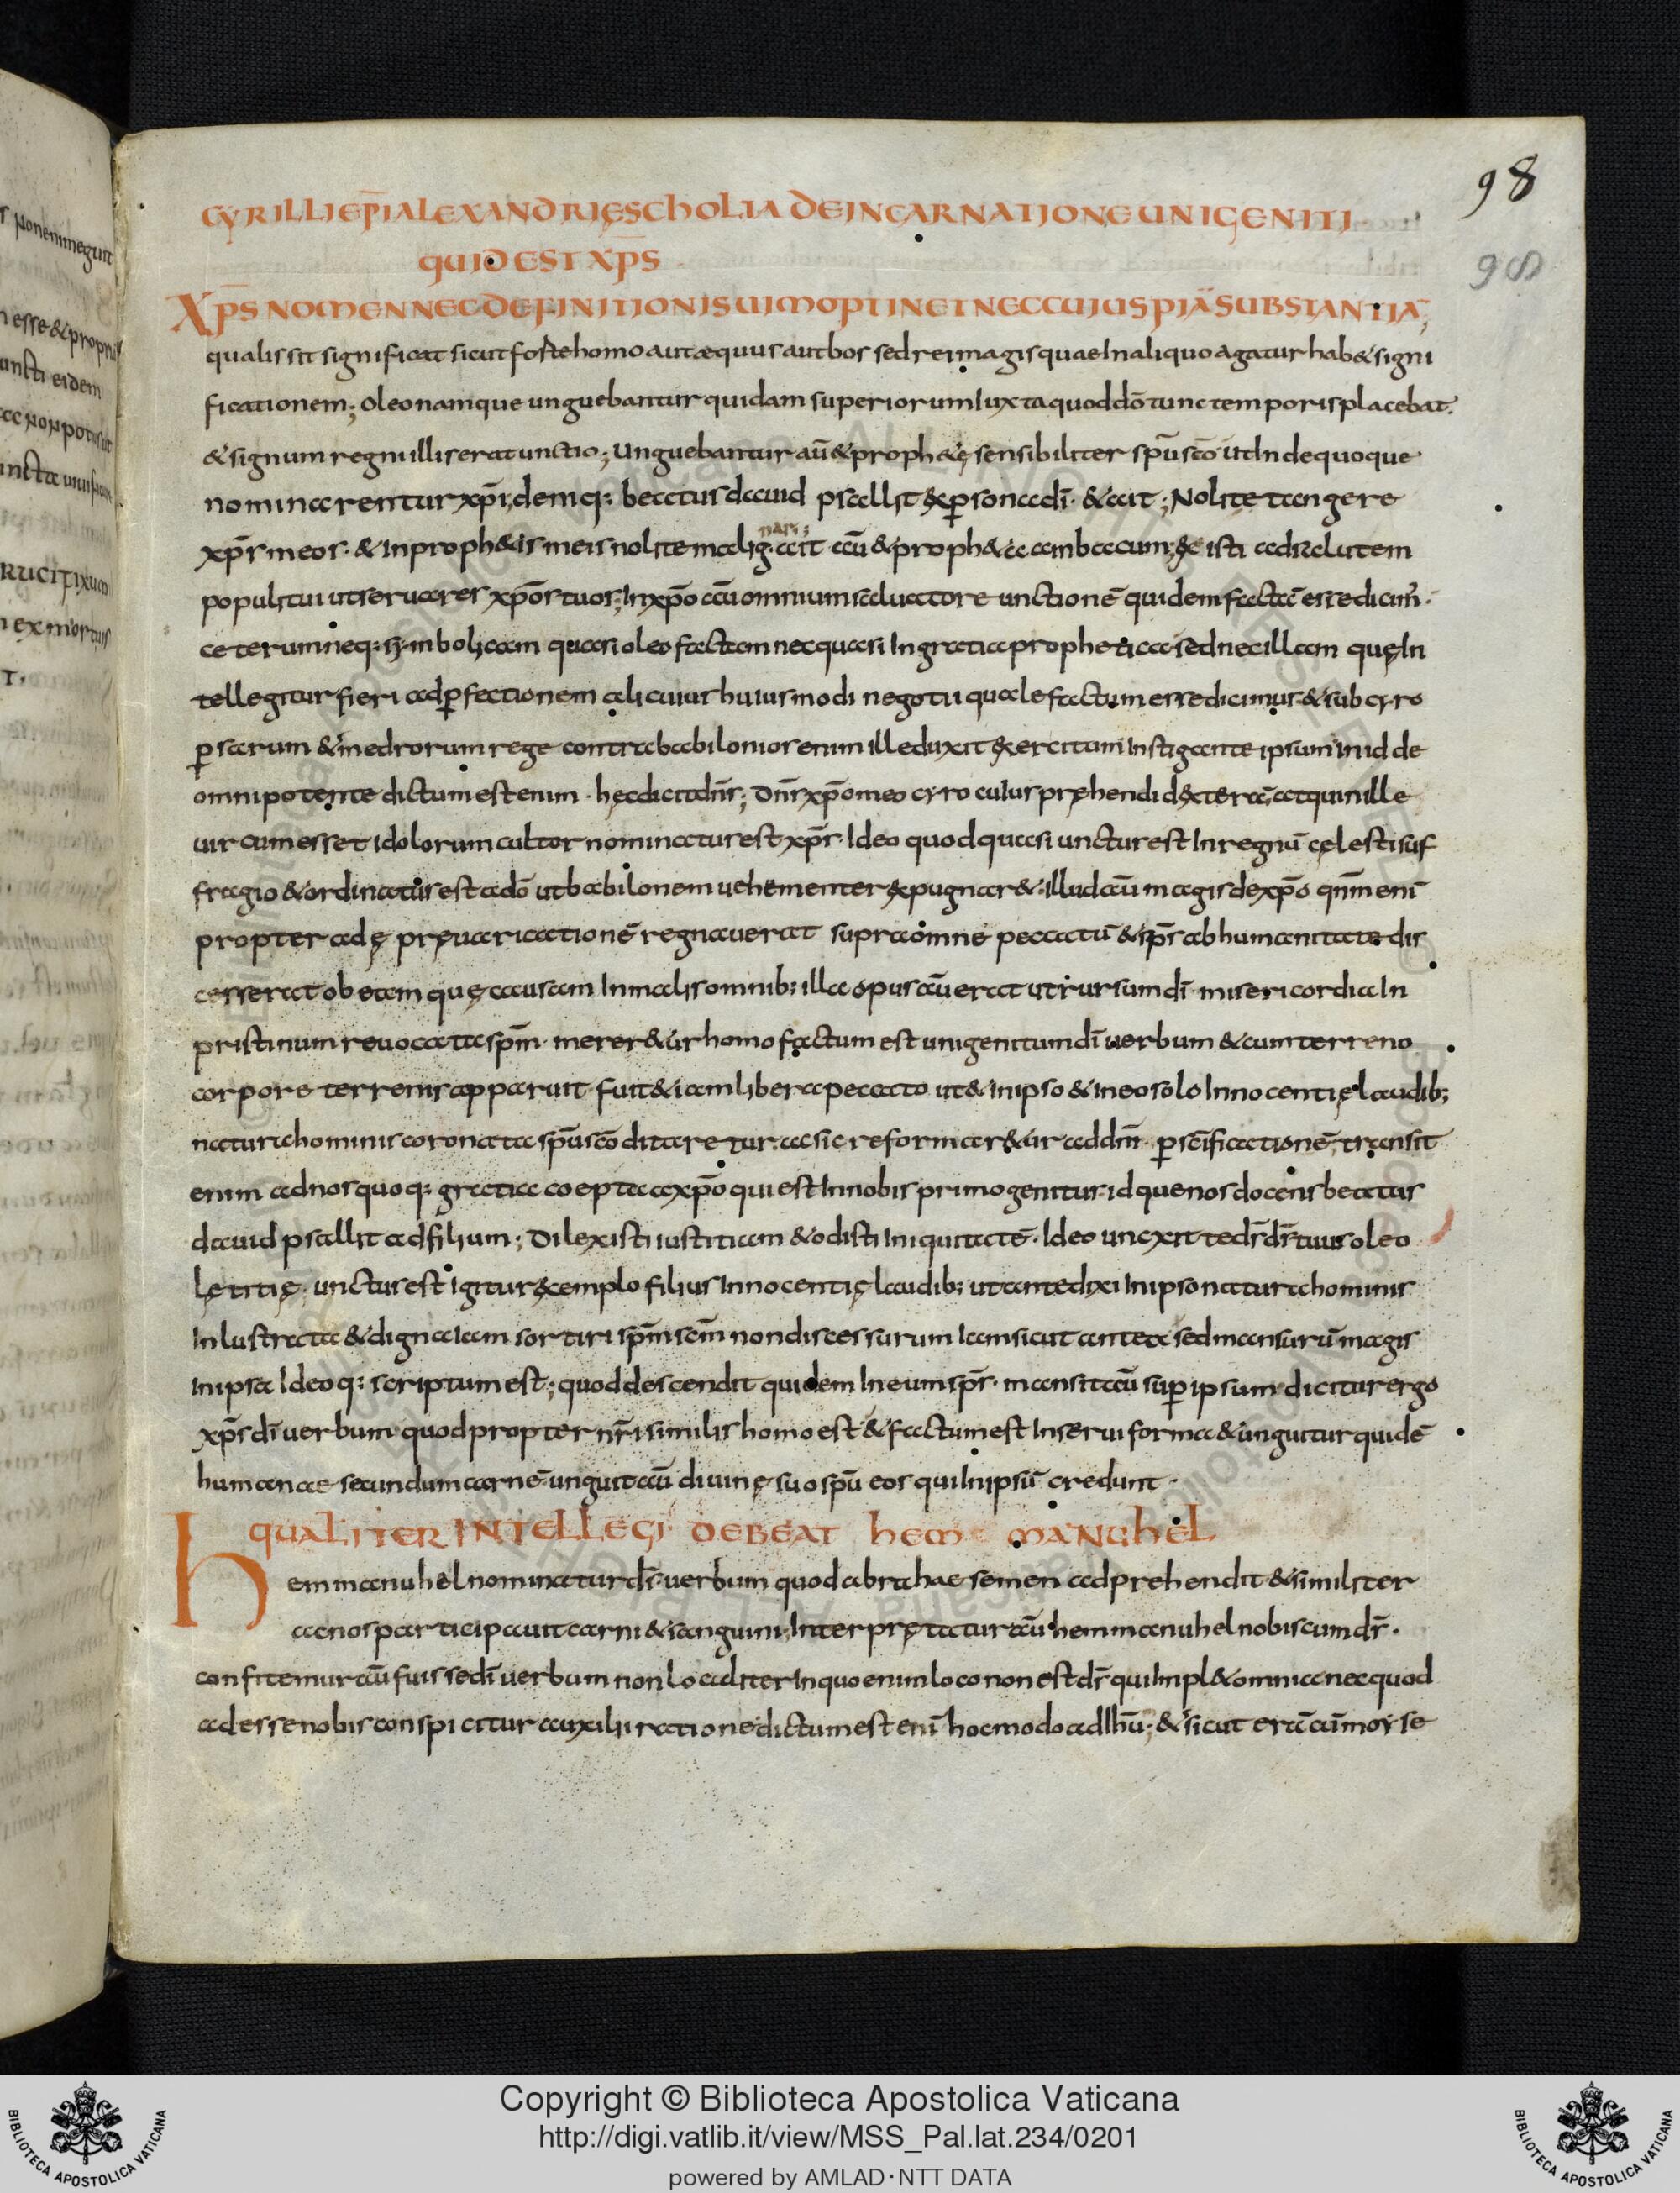 98
98
CYRILLI EP̄I ALEXANDRIĘ SCHOLIA DE INCARNATIONE UNIGENITI
QUID EST XP̄S
XP̄S NOMEN NEC DEFINITIONIS UIM OPTINET NEC CUIUSPIĀ SUBSTANTIĀ;
qualis sit significat sicut forte homo aut æquus aut bos sed rei magis quae In aliquo agatur hab& signi
ficationem; Oleo namque unguebantur quidam superiorum Iuxta quod dō tunc temporis placebat.
& signum regni illis erat unctio; Unguebantur aū & proph&ę sensibiliter spū scō ut Inde quoque
nominarentur xp̄i; deniq; beatus dauid psallit ex p̱sona dī · & ait; Nolite tangere
xp̄s meos · & In proph&is meis nolite malignari; ait aū & proph&a ambacum; & isti ad salutem
populi tui ut seruares xp̄os tuos; In xp̄o aū omnium saluatore unctionē quidem factā esse dicim̄ ·
ceterum neq; symbolicam quasi oleo factam nec quasi In gratia prophetica sed nec illam quę In
tellegitur fieri ad p̱fectionem alicuius huiusmodi negotii quale factum esse dicimus & sub cyro
p̱sarum & medrorum rege contra babilonios enim ille duxit exercitum Instigante ipsum In id de
omnipotente dictum est enim · hęc dicit dn̄s; Dn̄s xp̄o meo cyro cuius pręhendi dexterā, atquin ille
uir cum esset Idolorum cultor nominatus est xp̄s · Ideo quod quasi unctus est In regnū cęlesti suf
fragio & ordinatus est a dō ut babilonem uehementer expugnar& · illud aū magis de xp̄o qn̄m enī
propter adę pręuaricationē regnauerat supra omne peccatū & sp̄s ab humanitate dis
cesserat ob eam quę causam In malis omnib; illa opus aū erat ut rursum dī misericordia In
pristinum reuocata sp̄m · merer&ur homo factum est unigenitum dī uerbum & cum terreno
corpore terrenis apparuit fuit & iam libera peccato ut & In ipso & In eo solo Innocentię laudib;
natura hominis coronata spū scō ditaretur ac sic reformar&ur ad dm̄ · p̱ scīficationē, transit
enim ad nos quoq; gratia coepta a xp̄o qui est In nobis primogenitus · id que nos docens beatus
dauid psallit ad filium; Dilexisti iustitiam & odisti Iniquitatē · Ideo unexit te dr̄ dr̄ tuus oleo
lętitię · unctus est igitur exemplo filius Innocentię laudib; ut ante dixi In ipso natura hominis
Inlustrata & digna Iam sortiri sp̄m scm̄ non discessurum Iam sicut antea sed mansurū magis
In ipsa Ideoq; scriptum est; quod descendit quidem In eum sp̄s · mansit aū sup̱ ipsum dicitur ergo
xp̄s dī uerbum quod propter nr̄i similis homo est & factum est In serui forma & unguitur quidē
humanae secundum carnē · unguit aū diuinę suo spū eos qui In ipsū credunt ·
QUALITER INTELLEGI DEBEAT HEMMANUHEL
Hemmanuhel nominatur ds̄ · uerbum quod abrahae semen adprehendit & similiter
ac nos participauit carni & sanguini; Interprętatur aū hemmanuhel nobiscum dr̄ ·
confitemur aū fuisse dī uerbum non localiter In quo enim loco non est dr̄ qui Impl& omnia nec quod
adesse nobis conspicitur auxilii ratione dictum est enī hoc modo ad Ihū; & sicut erā cū moyse
Copyright © Biblioteca Apostolica Vaticana
http://digi.vatlib.it/view/MSS_Pal.lat.234/0201
powered by AMLAD·NTT DATA
BIBLIOTECA APOSTOLICA VATICANA
BIBLIOTECA APOSTOLICA VATICANA